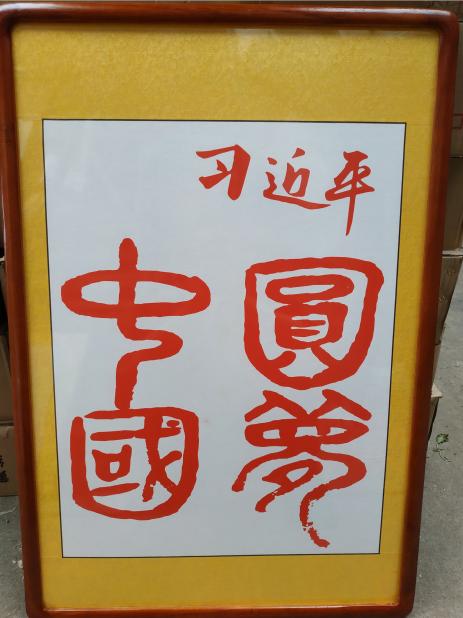 习近平
圓夢
中國